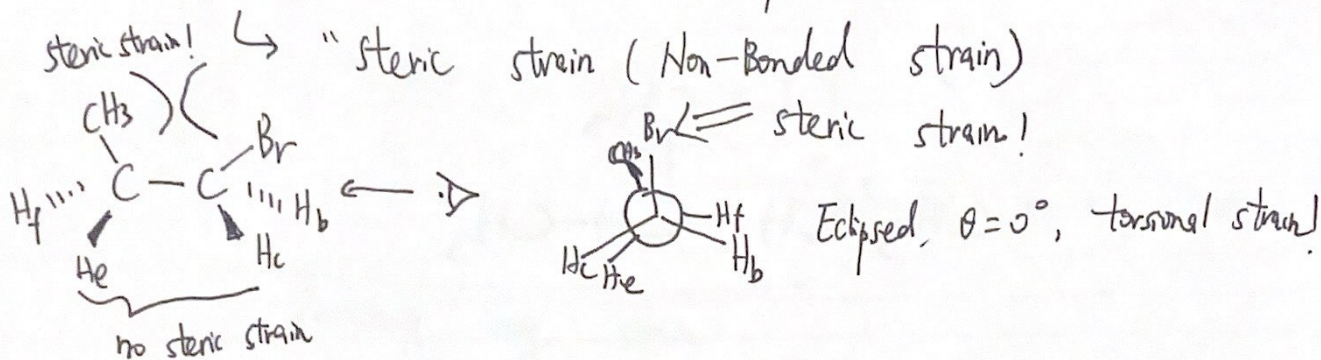 steric strain!
" steric strain (Non-Bonded strain)
CH3
Br
Hf
C - C
Hb
He
Hc
no steric strain
Br steric strain!
CH3
Hf
Hb
Hc
He
Eclipsed, θ=0°, torsional strain!